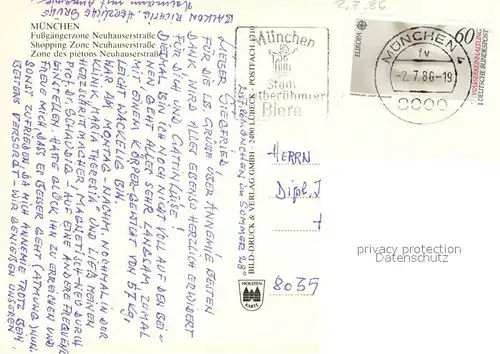 BALKON RICHTIG. HERZLICHE GRÜSSE
2.7.86
MÜNCHEN
Fußgängerzone Neuhauserstraße
Shopping Zone Neuhauserstraße
Zone des piétons Neuhauserstraße
LIEBER SIEGFRIED!
FÜR DIE LB. GRÜSSE ÜBER ANNEMIE BESTEN
DANK. WIRD ALLES EBENSO HERZLICH ERWIDERT
FÜR DICH UND GATTIN LUISE!
DIESMAL BIN ICH NOCH NICHT VOLL AUF DEN BEI-
NEN. GEHT ALLES SEHR LANGSAM ZUMAL
MIT EINEM KÖRPER-GEWICHT VON 57 Kg.
LEICHT WACKELIG BIN.
WAR AM MONTAG-NACHM. NOCHMAL IN DER
KLINIK MARIA THERESIA UND LIESS MEINEN
HERZSCHRITTMACHER MAGNETISCH NEU DURCH
PROF. DR. SCHAUDIG - AUF EINE ANDERE FREQUENZ
EINSTELLEN. HATTE GLÜCK IHN ZU ERREICHEN UND
FREUE MICH, DASS ES BESSER GEHT (ATMUNG) NUN.
SONST ZUFRIEDEN, DA MICH ANNEMIE TROTZ BEIN
BESTENS VERSORGT - WIR GENIESSEN UNSEREN
BILD-DRUCK & VERLAG GMBH · 2400 LÜBECK · POSTFACH
MÜNCHEN IM SOMMER 28°
HOLSTEN
KARTE
München
Stadt
weltberühmter
Biere
MÜNCHEN 4
fv
-2.7.86-19
8000
EUROPA
60
DEUTSCHE BUNDESPOST
HERRN
Dipl. I
8035
privacy protection